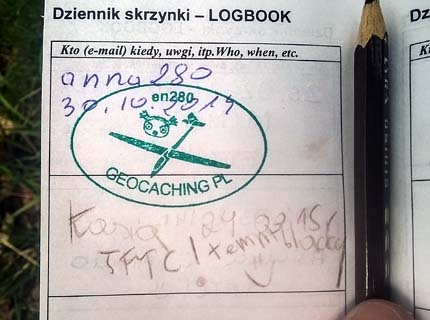 Dziennik skrzynki – LOGBOOK
Kto (e-mail) kiedy, uwgi, itp.Who, when, etc.
anna280
30.10.2014
en280
GEOCACHING PL
Kasia 24 03 15r
TFTC!